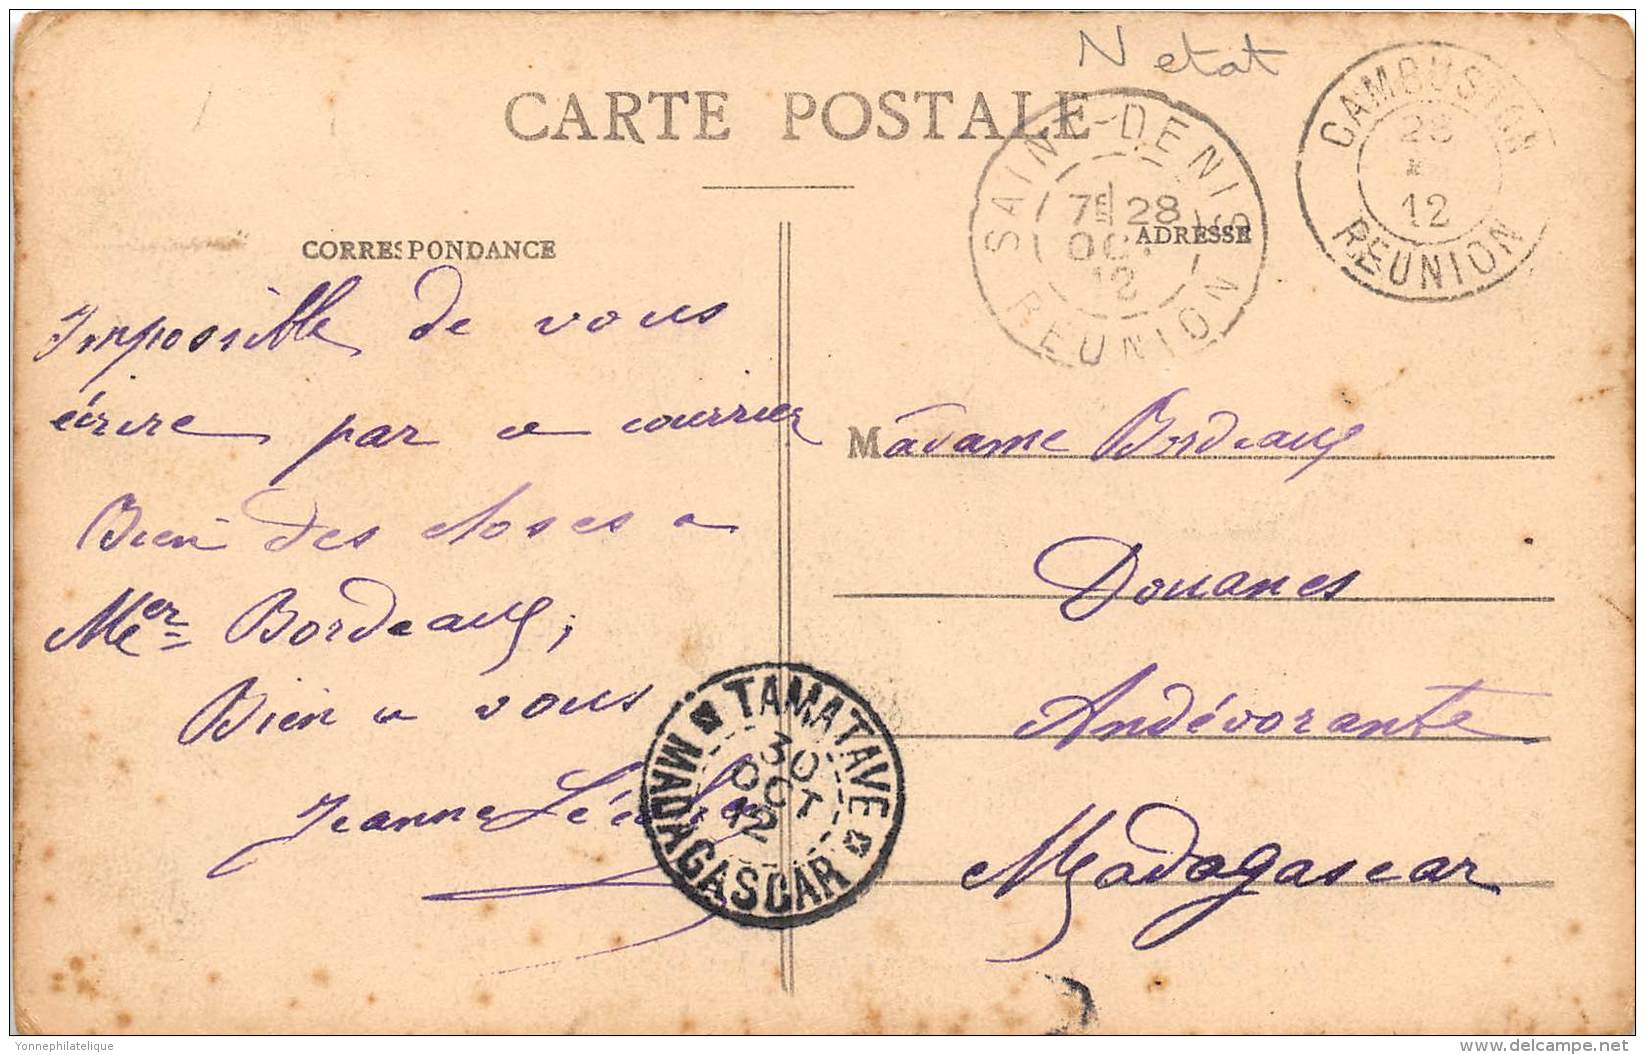 N etat
CARTE POSTALE
SAINT-DENIS
7E 28
OCT
12
REUNION
CAMBUSTON
28
12
REUNION
CORRESPONDANCE
ADRESSE
Impossible de vous
écrire par ce courrier
Bien des choses a
Bordeaux,
Bien a vous
Jeanne
Madame Bordeaux
Douanes
Andévorante
Madagascar
TAMATAVE
30
OCT
12
MADAGASCAR
Yonnephilatelique
delcampe.net